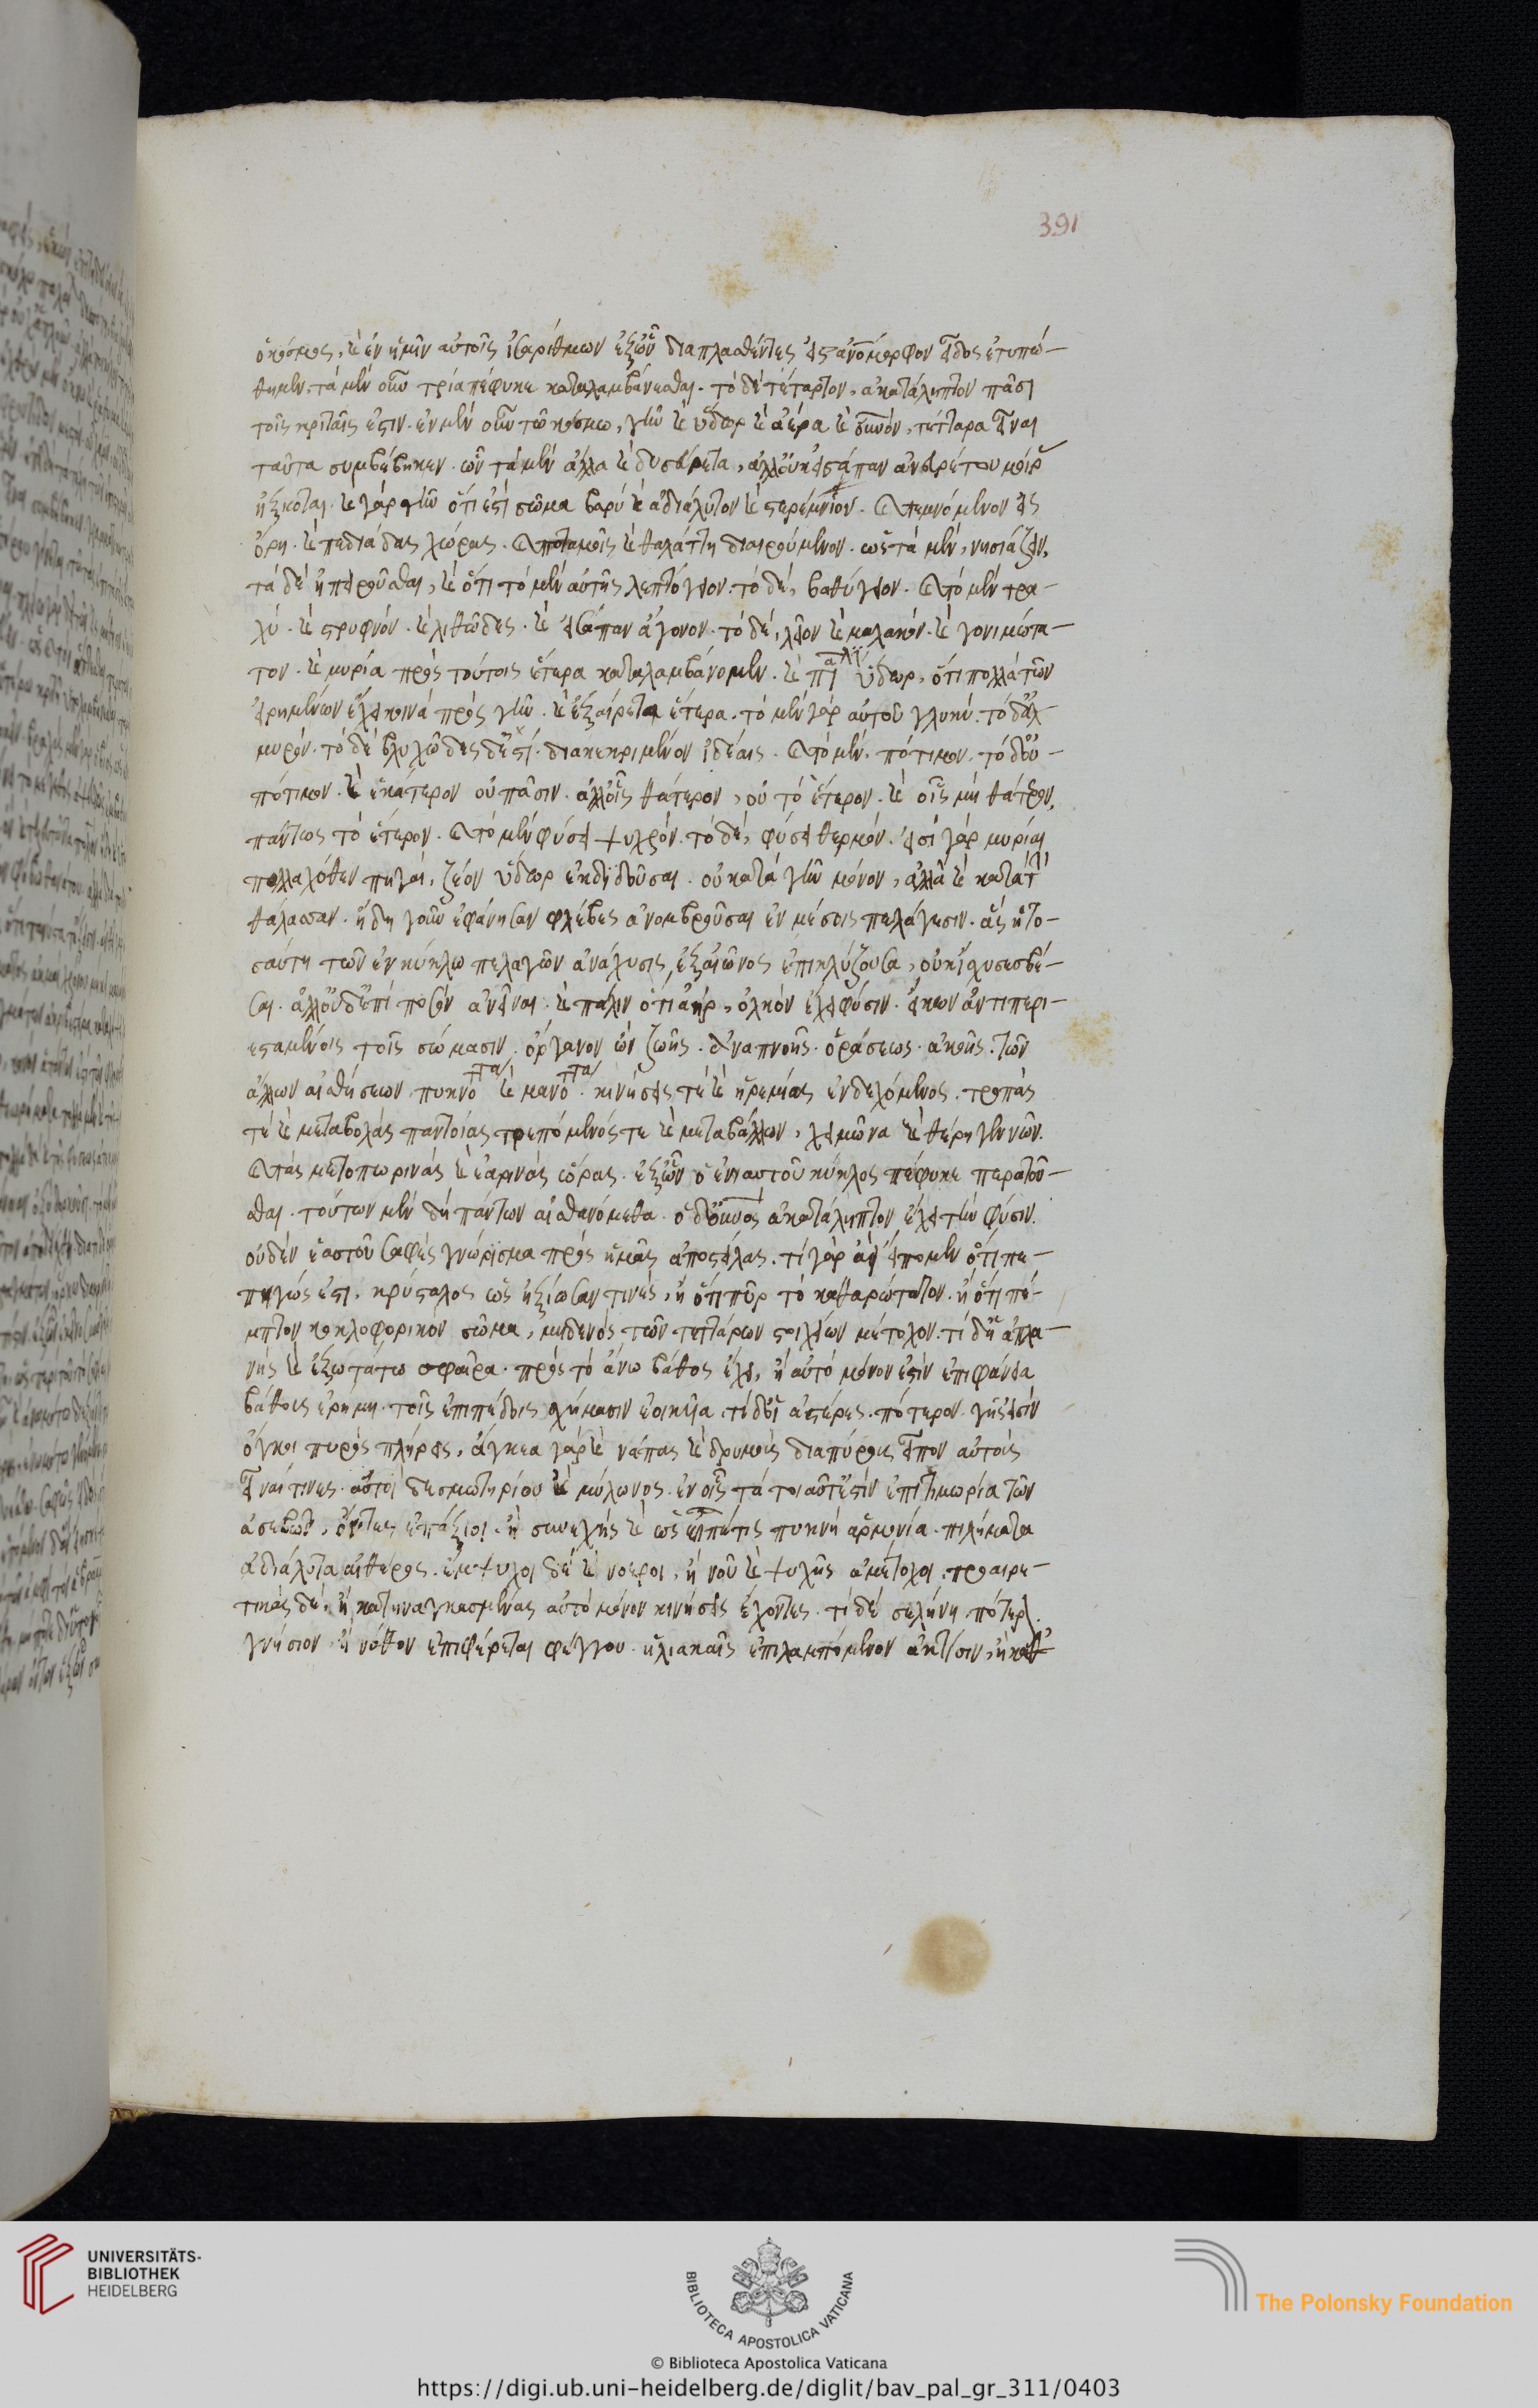 391
ὁ κόσμος, καὶ ἐν ἡμῖν αὐτοῖς ἰσαρίθμων ἐξ ὧν διαπλασθέντες εἰς ἀνομόρφον εἶδος ἐτυπώ-
θημεν. τὰ μὲν οὖν τρία πέφυκε καταλαμβάνεσθαι. τὸ δὲ τέταρτον, ἀκατάληπτον πᾶσι
τοῖς κριταῖς ἐστιν. ἐν μὲν οὖν τῷ κόσμω, γῆν καὶ ὕδωρ καὶ ἀέρα καὶ οὐνόν, τέτταρα εἶναι
ταῦτα συμβέβηκεν. ὧν τὰ μὲν ἄλλα καὶ δυσεύρετα, ἀλλ' οὐκ εἰσάπαν ἀνευρέτου μοίρ
ἠξίωται. καὶ γὰρ γῆν ὅτι ἐστὶ σῶμα βαρὺ καὶ ἀδιάλυτον καὶ στερέμνιον. καὶ τεμνόμενον εἰς
ὄρη. καὶ πεδιάδας χώρας. καὶ ποταμοῖς καὶ θαλάττη διαιρούμενον. ὡς τὰ μὲν, νησιάζειν,
τὰ δὲ ἠπειροῦσθαι, καὶ ὅτι τὸ μὲν αὐτῆς λεπτόγειον. τὸ δὲ, βαθύγειον. καὶ τὸ μὲν τρα-
χύ. καὶ στρυφνόν. καὶ λιθῶδες. καὶ εἰσάπαν ἄγονον. τὸ δὲ, λεῖον καὶ μαλακόν. καὶ γονιμώτα-
τον. καὶ μυρία πρὸς τούτοις ἕτερα καταλαμβάνομεν. καὶ πάλιν ὕδωρ, ὅτι πολλὰ τῶν
εἰρημένων ἔχει κοινὰ πρὸς γῆν. καὶ ἐξαίρετα ἕτερα. τὸ μὲν γὰρ αὐτοῦ γλυκύ. τὸ δ' ἁλ-
μυρόν. τὸ δὲ βλυχῶδες δ' ἐστί. διακεκριμένον ἰδέαις. καὶ τὸ μὲν. πότιμον. τὸ δ' οὐ
πότιμον. καὶ ἑκάτερον οὐ πᾶσιν. ἀλλ' οἷς θάτερον, οὐ τὸ ἕτερον. καὶ οἷς μὴ θάτερον,
πάντως τὸ ἕτερον. καὶ τὸ μὲν φύσει ψυχρόν. τὸ δὲ, φύσει θερμόν. εἰσὶ γὰρ μυρίαι
πολλαχόθεν πηγαὶ, ζέον ὕδωρ ἐκδιδοῦσαι. οὐ κατὰ γῆν μόνον, ἀλλὰ καὶ κατὰ τὴν
θάλασσαν. ἤδη γοῦν ἐφάνησαν φλέβες ἀνομβροῦσαι ἐν μέσοις πελάγεσιν. ἃς ἡ το-
σαύτη τῶν ἐν κύκλω πελαγῶν ἀνάχυσις, ἐξ αἰῶνος ἐπικλύζουσα, οὐκ ἴσχυσε σβέ-
σαι. ἀλλ' οὐδ' ἐπὶ ποσὸν ἀνεῖναι. καὶ πάλιν ὅτι ἀὴρ, ὁλκὸν ἔχει φύσιν. εἴκων ἀντιπερι-
εσταμένοις τοῖς σώμασιν. ὄργανον ὢν ζωῆς. ἀναπνοῆς. ὁράσεως. ἀκοῆς. τῶν
ἄλλων αἰσθήσεων πυκνότητας καὶ μανότητας. κινήσεις τὲ καὶ ἠρεμίας ἐνδεχόμενος. τροπάς
τὲ καὶ μεταβολὰς παντοίας τρεπόμενός τε καὶ μεταβάλλων, χειμῶνα καὶ θέρη γεννῶν.
καὶ τὰς μετοπωρινὰς καὶ ἐαρινὰς ὥρας. ἐξ ὧν ὁ ἐνιαυτοῦ κύκλος πέφυκε περατοῦ-
σθαι. τούτων μὲν δὴ πάντων αἰσθανόμεθα. ὁ δ' οὐνος ἀκατάληπτον ἔχει τὴν φύσιν.
οὐδὲν ἑαυτοῦ σαφὲς γνώρισμα πρὸς ἡμᾶς ἀποστείλας. τί γὰρ ἂν εἴποιμεν ὅτι πε-
πηγώς ἐστι, κρύσταλος, ὡς ἠξίωσαν τινὲς, ἢ ὅτι πῦρ τὸ καθαρώτατον. ἢ ὅτι πέ-
μπτον κυκλοφορικὸν σῶμα, μηδενὸς τῶν τεττάρων στοιχείων μέτοχον. τί δ' ἡ ἀπλα-
νὴς καὶ ἐξωτάτω σφαῖρα. πρὸς τὸ ἄνω βάθος ἔχει, ἢ αὐτὸ μόνον ἐστὶν ἐπιφάνεια
βάθους ἐρήμη. τοῖς ἐπιπέδοις σχήμασιν ἐοικυῖα. τί δ' οἱ ἀστέρες. πότερον γῆς εἰσὶν
ὄγκοι πυρὸς πλήρεις, ἄγκεα γὰρ καὶ νάπας καὶ δρυμοὺς διαπύρους εἶπον αὐτοὺς
εἶναι τινες. αὐτοὶ δεσμωτηρίου καὶ μύλωνος. ἐν οἷς τὰ τοιαῦτ' ἐστὶν ἐπὶ τιμωρία τῶν
ἀσεβῶν, ὄντες ἐπάξιοι. ἢ συνεχὴς καὶ ὡς εἶπέ τις πυκνὴ ἁρμονία. πιλήματα
ἀδιάλυτα αἰθέρος. ἔμψυχοι δὲ καὶ νοεροὶ, ἢ νοῦ καὶ ψυχῆς ἀμέτοχοι. προαιρε-
τικὰς δὲ, ἢ κατηναγκασμένας αὐτὸ μόνον κινήσεις ἔχοντες. τί δὲ σελήνη πότερον
γνήσιον ἢ νόθον ἐπιφέρεται φέγγου. ἡλιακαῖς ἐπιλαμπόμενον ἀκτῖσιν, ἢ καθ
UNIVERSITÄTS-
BIBLIOTHEK
HEIDELBERG
BIBLIOTECA APOSTOLICA VATICANA
The Polonsky Foundation
© Biblioteca Apostolica Vaticana
https://digi.ub.uni-heidelberg.de/diglit/bav_pal_gr_311/0403